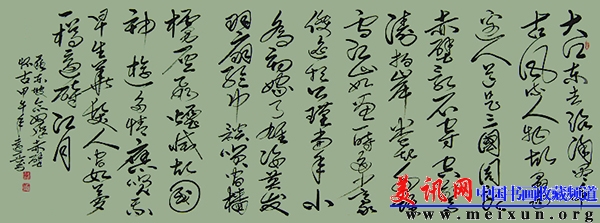 大江东去浪淘尽千
古风流人物故垒
西边人道是三国周郎
赤壁乱石穿空惊
涛拍岸卷起千堆
雪江山如画一时多少豪
杰遥想公瑾当年小
乔初嫁了雄姿英发
羽扇纶巾谈笑间樯
橹灰飞烟灭故国
神游多情应笑我
早生华发人间如梦
一樽还酹江月
苏东坡念奴娇赤壁
怀古甲午年
美讯网
中国书画收藏频道
www.meixun.org